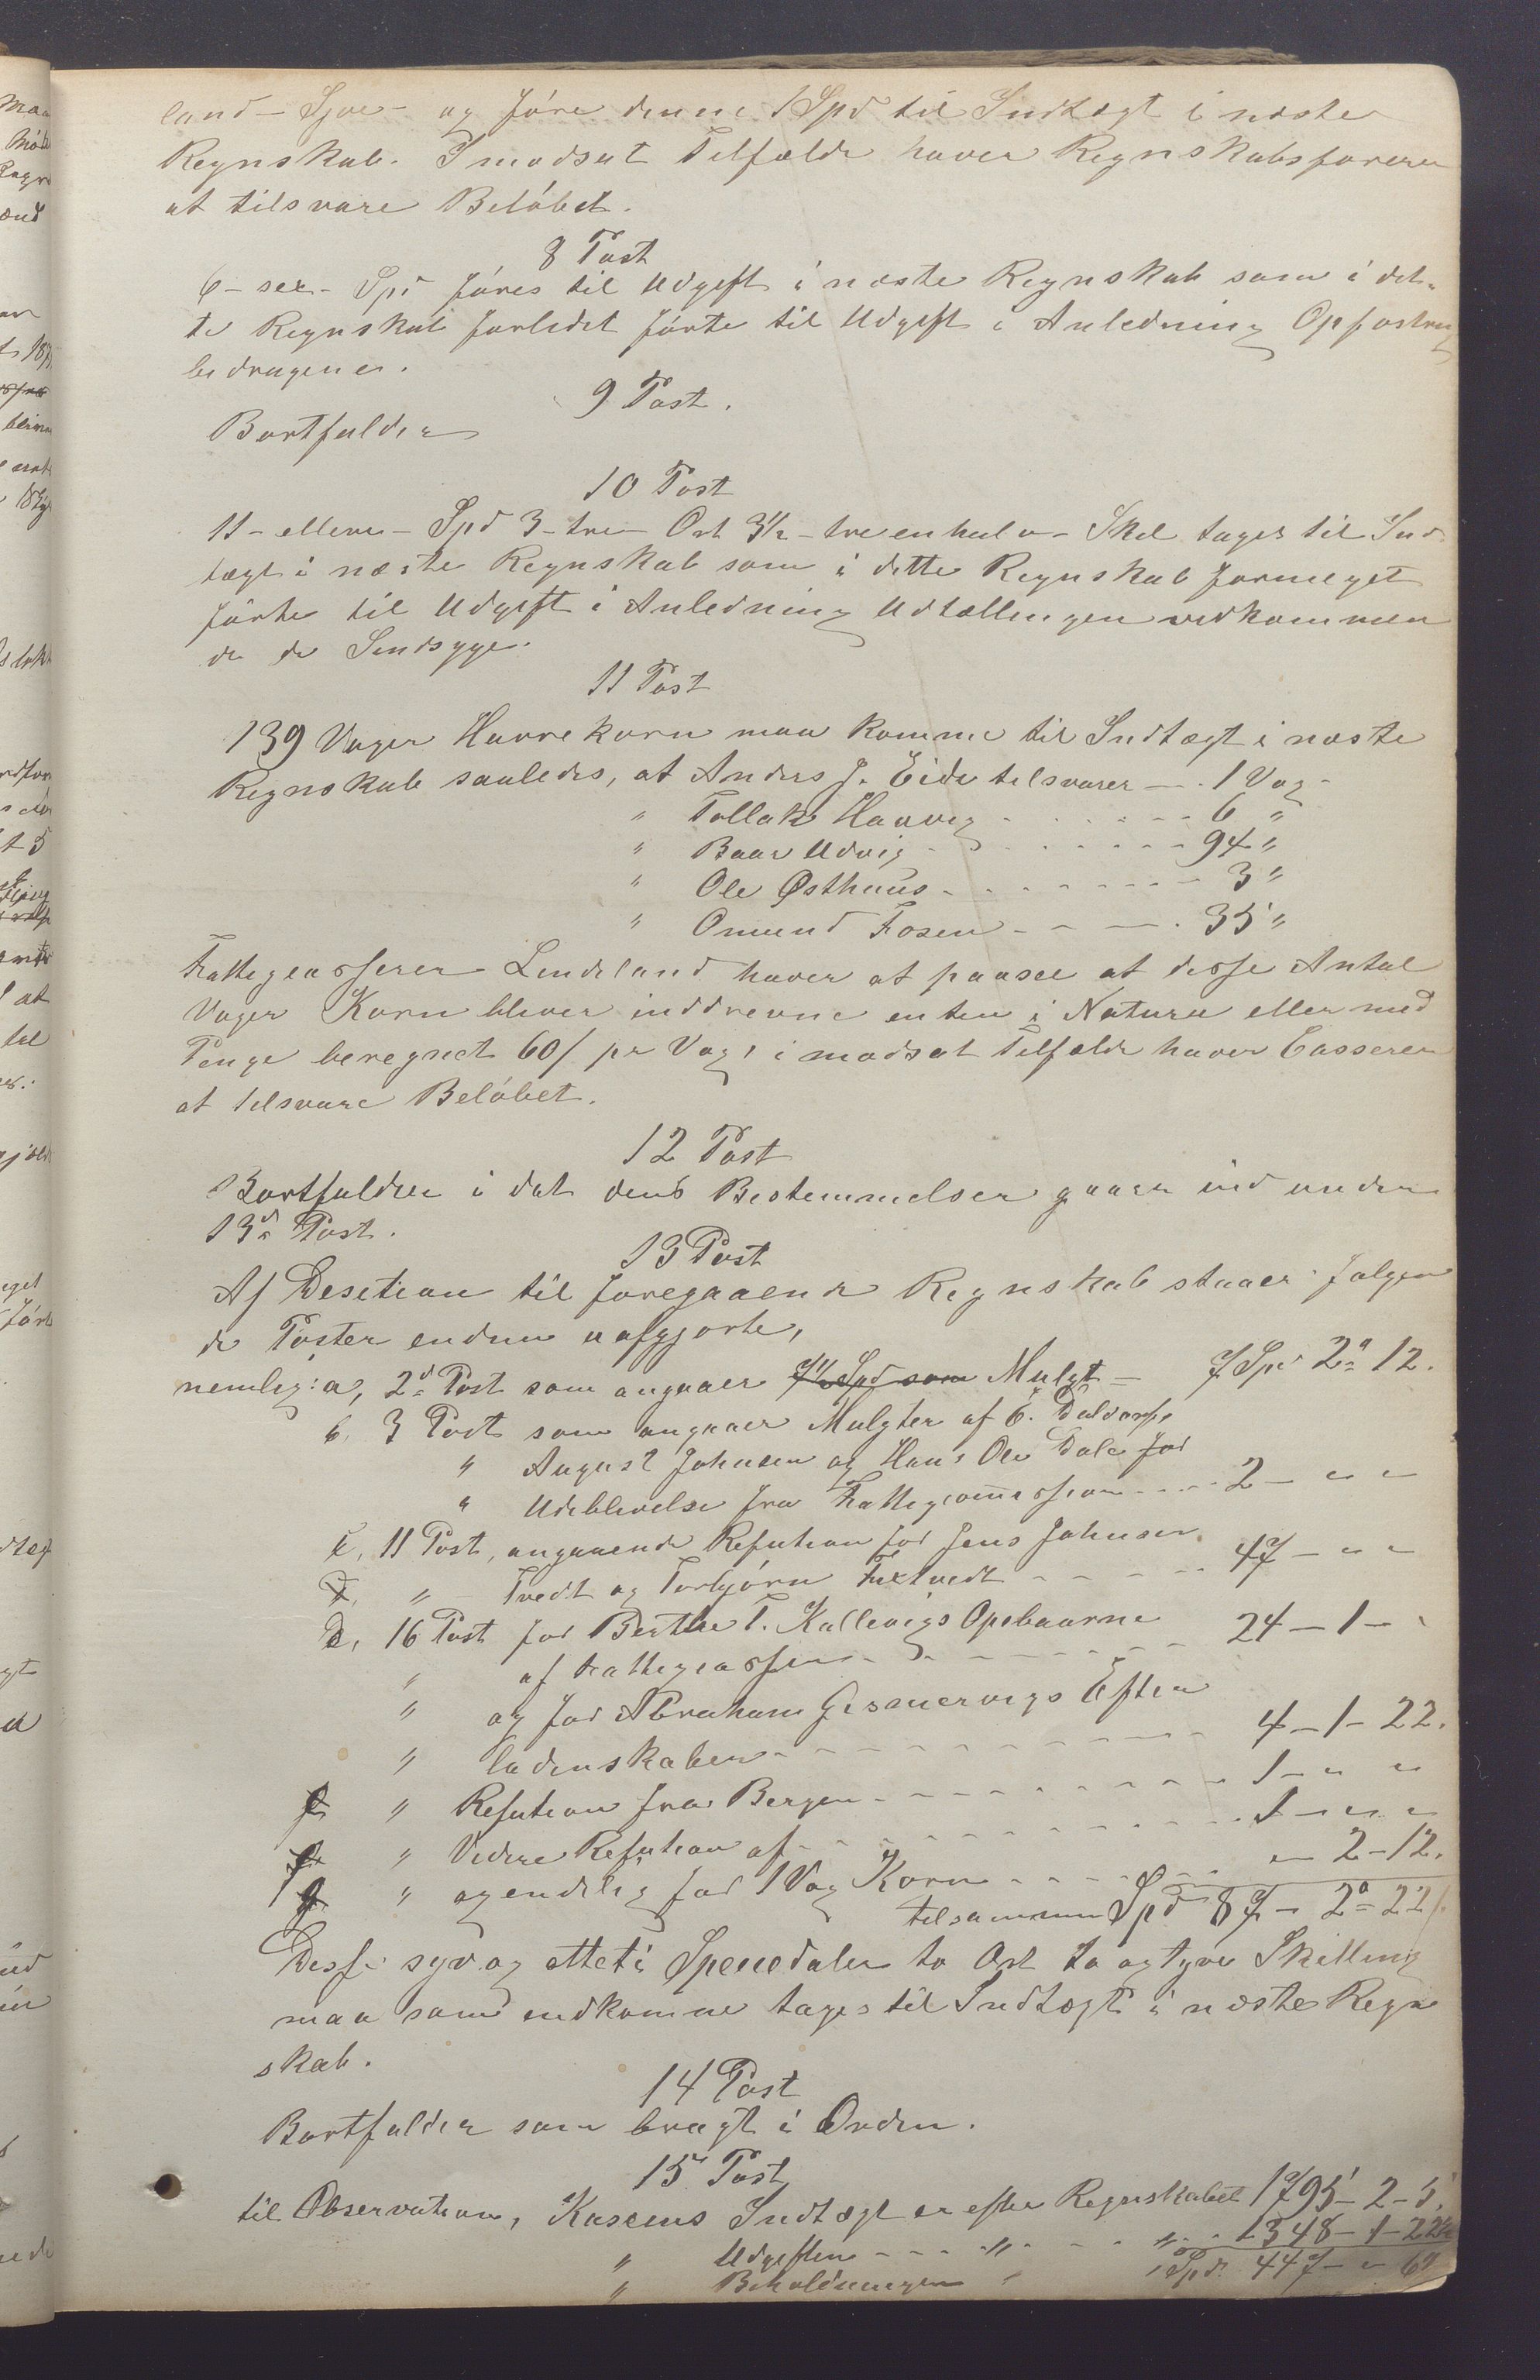 land - Sjve - og føre denne 1 Spd til Indtægt i næste
Regnskab. I modsat Tilfælde haver Regnskabsføreren
at tilsvare Beløbet.
8 Post
6 - sex - Spd føres til Udgift i næste Regnskab som i det-
te Regnskab forlidet førte til Udgift i Anledning Opfostrings
bidragene.
9 Post.
Bortfalder
10 Post
11 - elleve - Spd 3 - tre - Ort 3½ - tre en halv - Skil tages til Ind
tægt i næste Regnskab som i dette Regnskab formeget
førte til Udgift i Anledning Udtællingen vedkommen
de de Sindsyge.
11 Post
139 Voger Havrekorn maa komme til Indtægt i næste
Regnskab saaledes, at Anders J. Eide tilsvarer - . 1 Vog -
" Tollak Haavig - - - - - - 6 "
" Baar Udvig - - - - - - 94 "
" Ole Østhuus - - - - - - 3 "
" Omund Fosen - - - - 35 "
Fattigcasserer Lindeland haver at paasee at disse Antal
Voger Korn bliver inddrevne enten i Natura eller med
Penge beregnet 60 / pr Vog, i modsat Tilfælde haver Casserer
at tilsvare Beløbet.
12 Post
Bortfalder i det dens Bestemmelser gaaer ind under
13de Post.
13 Post
Af Desition til foregaaende Regnskab staaer følgen
de Poster endnu uafgjorte,
nemlig: a, 2d Post som angaaer 7½ Spd som Mulgt - 7 Spd 2 12.
b, 3 Post som angaaer Mulgter af C. Daldorph,
" August Johnsen og Hans Ole Dale for
" Udeblivelse fra Fattigcommissionen - - - 2 - " "
c, 11 Post, angaaende Refution for Jens Johnsen
" Tvedt og Torbjørn Tuxtvedt - - - - - 47 - " "
d, 16 Post for Berthe T. Kallevigs Opebaarne
" af Fattigcassen - - - - - - - 24 - 1 - "
" og for Abraham Gismervigs Efter
" ladenskaber - - - - - - - 4 - 1 - 22.
e " Refution fra Bergen - - - - - - - 1 - " "
f " Videre Refution af - - - - - - - 1 - " "
g " og endelig for 1 Vog Korn - - - - - " 2 - 12.
tilsammen Spd 87 - 2 - 22 /.
Disse syv og otteti Speciedaler to Ort to og tyve Skilling
maa som indkomne tages til Indtægt i næste Regn
skab.
14 Post
Bortfalder som bragt i Orden.
15 Post
til Observation, Kassens Indtægt er efter Regnskabet 1795 - 2 - 5.
" Udgiften - - - " - - " - 1348 - 1 - 22½
" Beholdningen " " Spd. 447 - " 6½